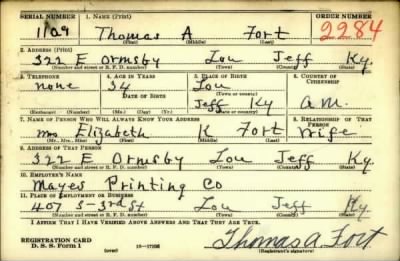 SERIAL NUMBER 1. NAME (Print) ORDER NUMBER
1109 Thomas A Fort 2284
(First) (Middle) (Last)
2. ADDRESS (Print)
322 E Ormsby Lou Jeff Ky.
(Number and street or R. F. D. number) (Town) (County) (State)
3. TELEPHONE 4. AGE IN YEARS 5. PLACE OF BIRTH 6. COUNTRY OF CITIZENSHIP
none 34 Lou
DATE OF BIRTH (Town or county)
Jeff Ky a.m.
(Exchange) (Number) (Mo.) (Day) (Yr.) (State or country)
7. NAME OF PERSON WHO WILL ALWAYS KNOW YOUR ADDRESS 8. RELATIONSHIP OF THAT PERSON
Mrs Elizabeth K Fort Wife
(Mr., Mrs., Miss) (First) (Middle) (Last)
9. ADDRESS OF THAT PERSON
322 E Ormsby Lou Jeff Ky.
(Number and street or R. F. D. number) (Town) (County) (State)
10. EMPLOYER'S NAME
Mayes Printing Co
11. PLACE OF EMPLOYMENT OR BUSINESS
407 S-3rd St Lou Jeff Ky
(Number and street or R. F. D. number) (Town) (County) (State)
I AFFIRM THAT I HAVE VERIFIED ABOVE ANSWERS AND THAT THEY ARE TRUE.
REGISTRATION CARD
D. S. S. Form 1 Thomas A. Fort
(Registrant's signature)